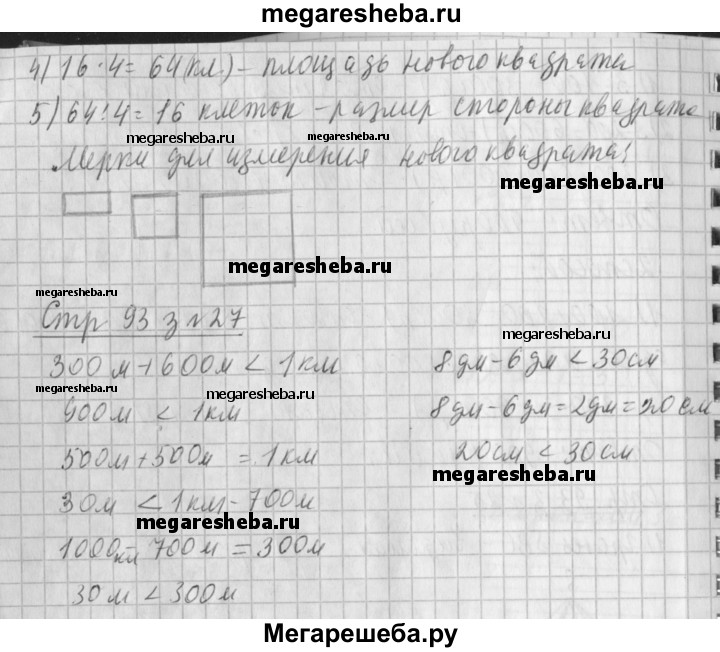 megaresheba.ru
4) 16 · 4 = 64 (кл) - площадь нового квадрата
5) 64 : 4 = 16 клеток - размер стороны квадрата
megaresheba.ru megaresheba.ru
Мерки для измерения нового квадрата:
megaresheba.ru
megaresheba.ru
megaresheba.ru
Стр 93 з №27
megaresheba.ru
300 м + 600 м < 1 км
8 дм - 6 дм < 30 см
megaresheba.ru
900 м < 1 км
8 дм - 6 дм = 2 дм = 20 см
500 м + 500 м = 1 км
20 см < 30 см
megaresheba.ru
30 м < 1 км - 700 м
megaresheba.ru
1000 - 700 м = 300 м
30 м < 300 м
Мегарешеба.ру